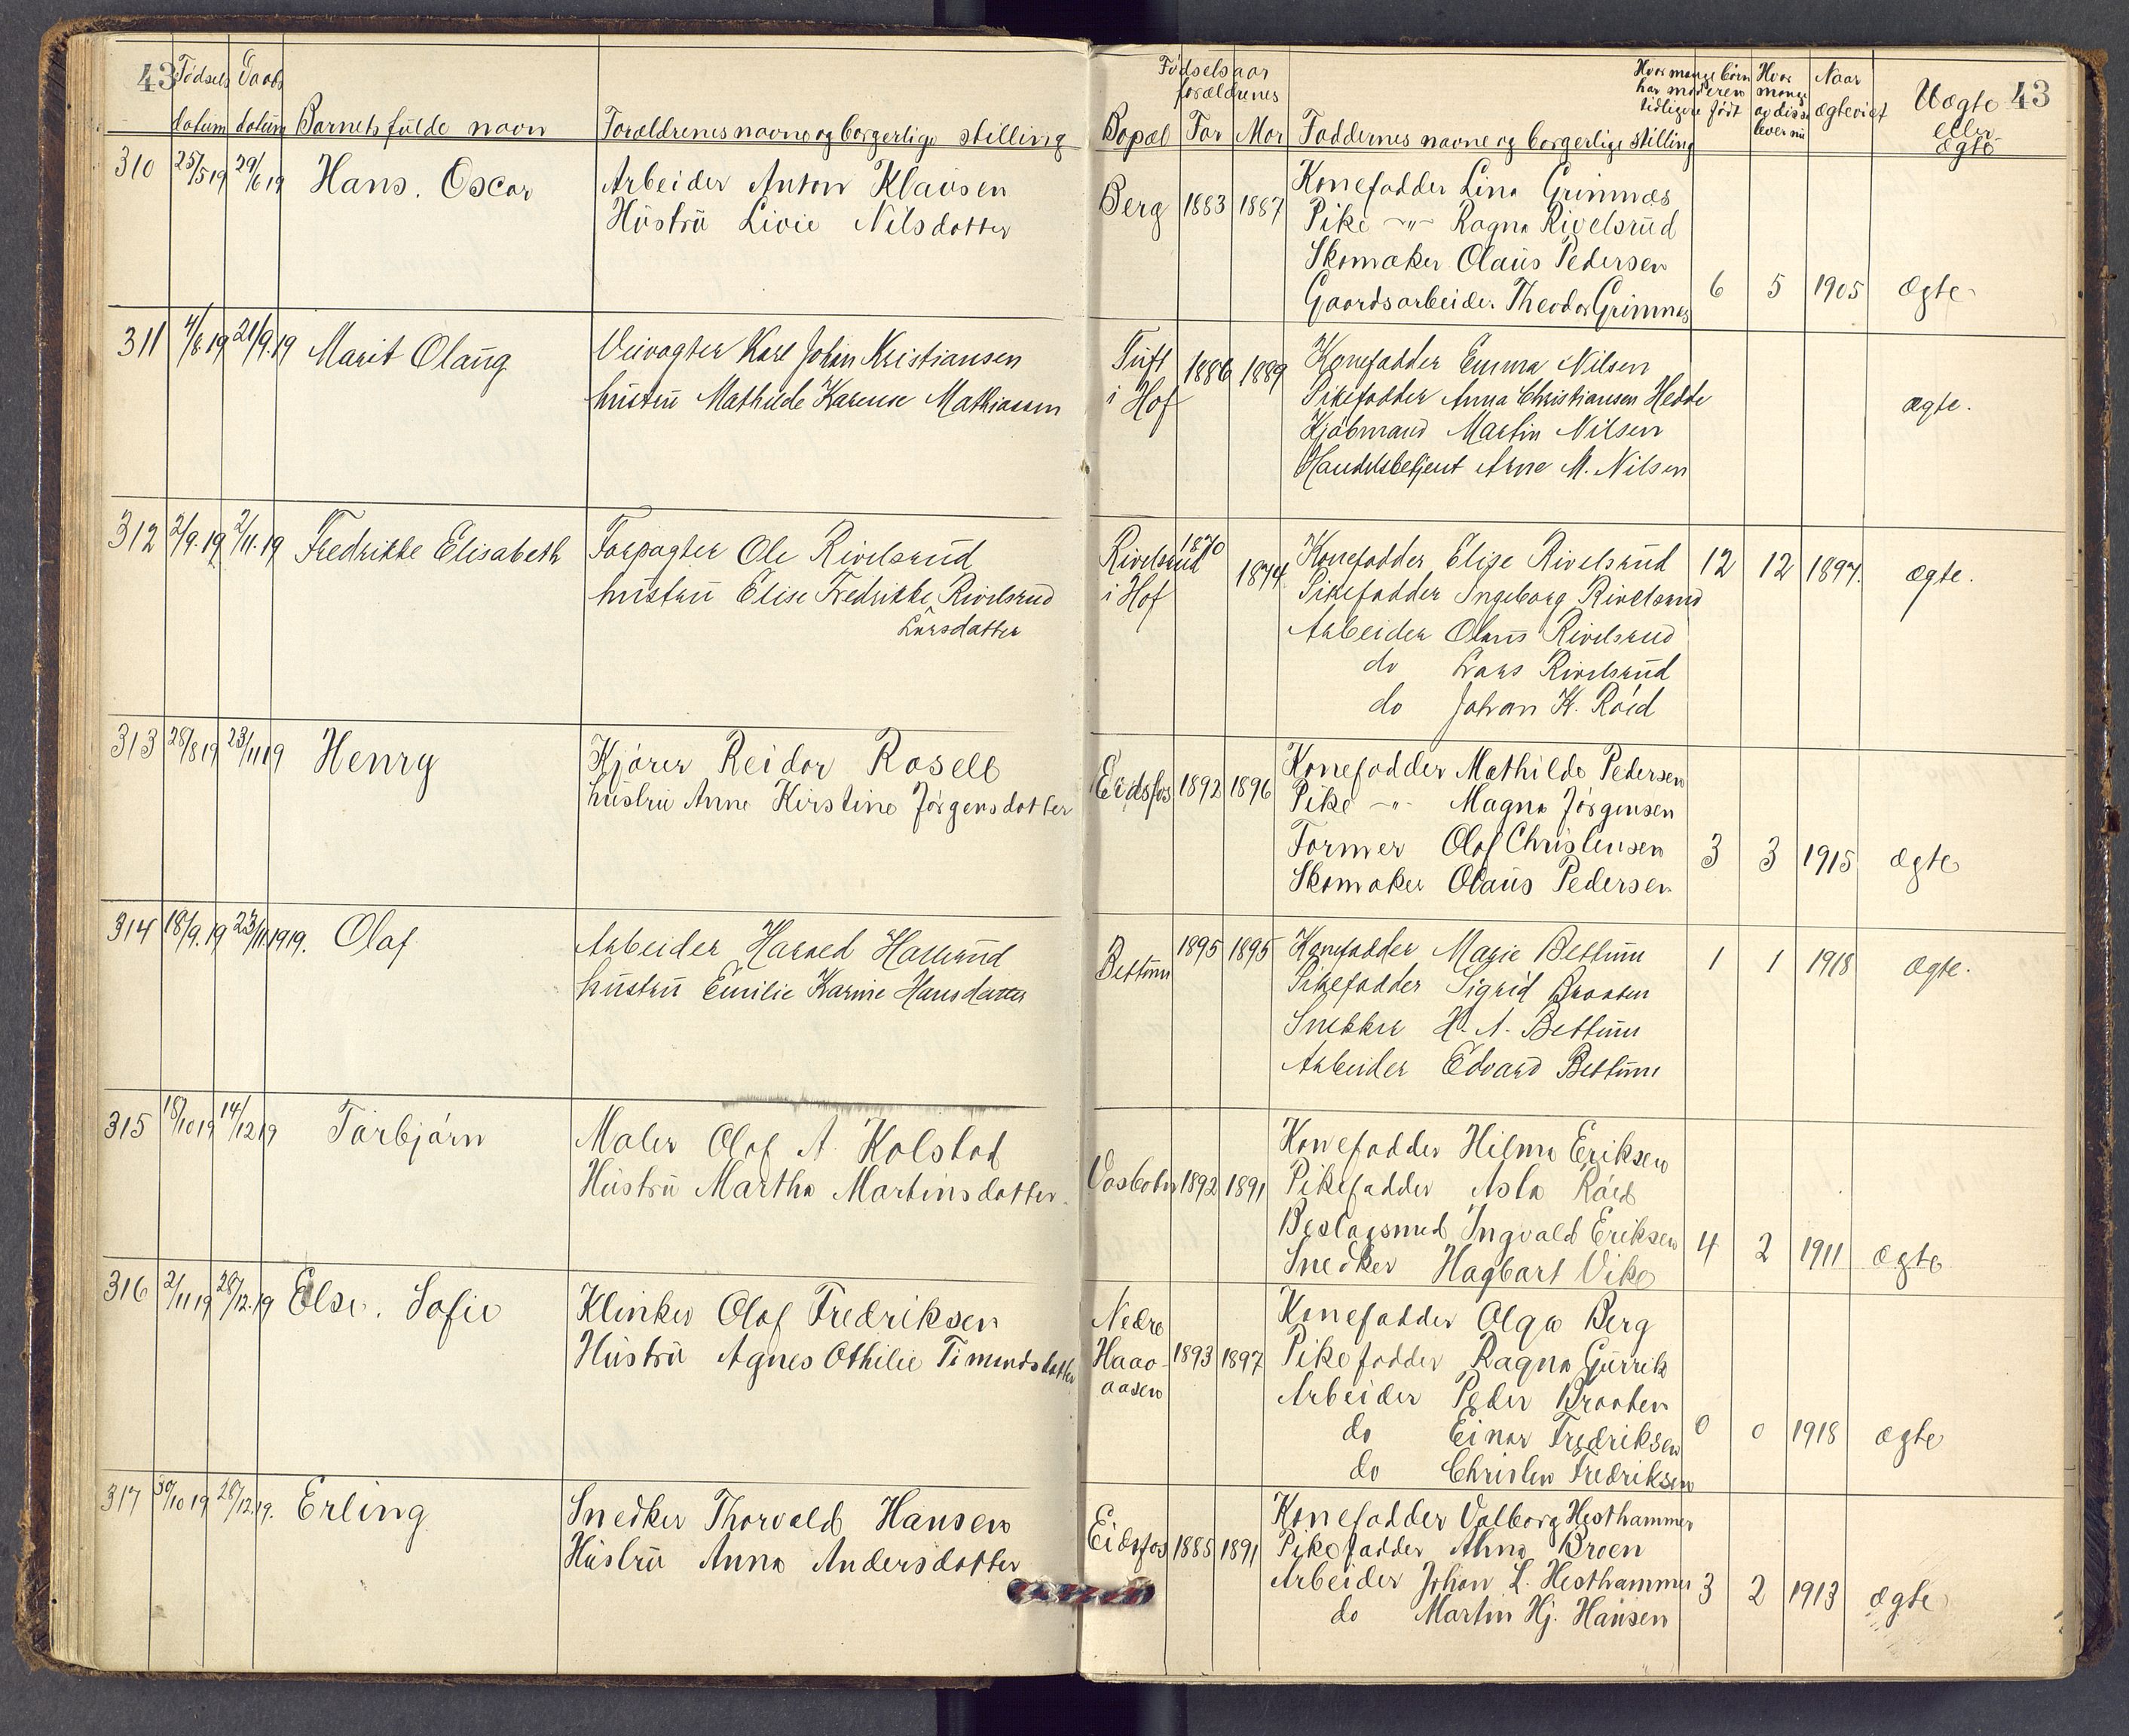 43 Fødsels Daabs
datum datum Barnets fulde navn Forældrenes navne og borgerlige stilling
310 25/5 19 29/6 19 Hans. Oscar Arbeider Anton Klausen
Hustru Livie Nilsdatter
311 4/8.19 21/9.19 Marit Olaug Veivogter Karl Johan Kristiansen
hustru Mathilde Karense Mathiassen
312 2/9.19 2/11.19 Fredrikke Elisabeth Forpagter Ole Rivelsrud
hustru Elise Fredrikke Rivelsrud
Larsdatter
313 28/8 19 23/11 19 Henry Kjører Reidar Rosell
hustru Anne Kirstine Jørgensdatter
314 18/9.19 23/11.1919. Olaf Arbeider Harald
hustru Emilie Karine Hansdatter
315 18/10 19 14/12 19 Torbjørn Maler Olaf A. Kolstad
Hustru Martha Martinsdatter.
316 2/11 19 28/12.19 Else. Sofie Klinker Olaf Fredriksen
Hustru Agnes Othilie
317 30/10 19 28/12.19. Erling Snedker Thorvald Hansen
Hustru Anna Andersdatter
Fødselsaar
forældrenes
Hvor mange børn
har moderen
tidligere født
Hvor
mange
av disse
lever nu
Naar
ægteviet
Uægte 43
eller
ægte
Bopæl Far Mor Faddernes navne og borgerlige stilling
Berg 1883 1887 Konefadder Lina Grimnes
Pike –"– Ragna Rivelsrud
Skomaker Olaus Pedersen
Gaardsarbeider Theodor Grimnes 6 5 1905 ægte
Tuft
i Hof 1886 1889 Konefadder Emma Nilsen
Pikefadder Anna Christiansen Hedde
Kjøbmand Martin Nilsen ægte.
Handelsbetjent Arne M. Nilsen
Rivelsrud
i Hof 1870 1874 Konefadder Elise Rivelsrud 12 12 1897. ægte.
Pikefadder Ingeborg Rivelsrud
Arbeider Olaus Rivelsrud
do Lars Rivelsrud
do Johan K. Røed
Eidsfos 1892 1896 Konefadder Mathilde Pedersen
Pike –"– Magna Jørgensen
Former Olaf Christensen 3 3 1915 ægte
Skomaker Olaus Pedersen
Bettum 1895 1895 Konefadder Marie Bettum 1 1 1918 ægte.
Pikefadder Sigrid Braaten
Snekker H. A. Bettum
Arbeider Edvard Bettum
Vasbotn 1892 1891 Konefadder Hilma Eriksen
Pikefadder Asta Røed
Beslagsmed Ingvald Eriksen
Snedker Hagbart Vike 4 2 1911 ægte
Nedre
Haao-
aasen 1893 1897 Konefadder Olga Berg
Pikefadder Ragna
Arbeider Peder Braaten
do Einar Fredriksen 0 0 1918 ægte
do Christen Fredriksen
Eidsfos 1885 1891 Konefadder Valborg Hesthammer
Pikefadder Anna Broen
Arbeider Johan L. Hesthammer 3 2 1913 ægte
do Martin Hj. Hansen